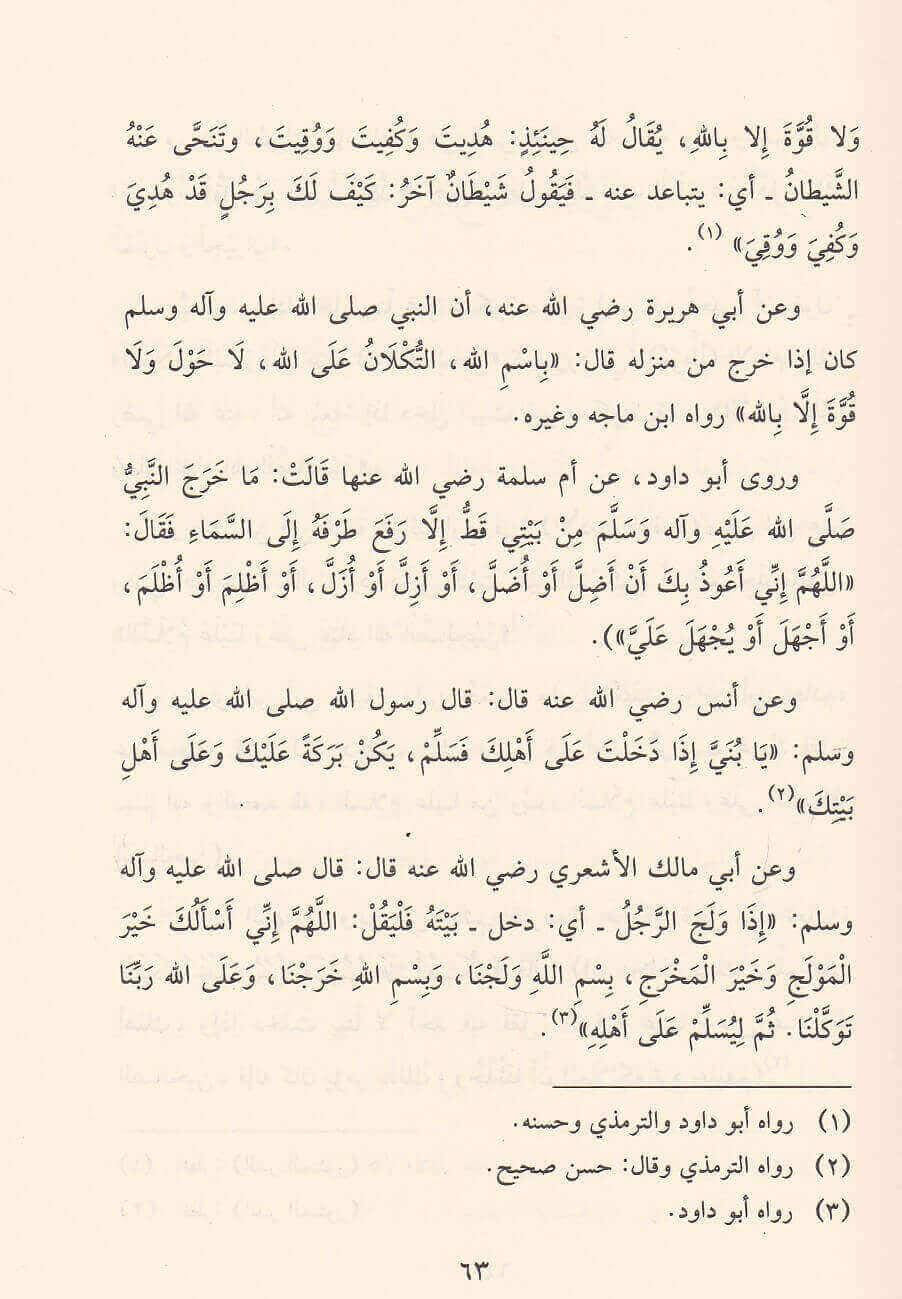 وَلا قُوَّةَ إِلا بِاللهِ، يُقَالُ لَهُ حِينَئِذٍ: هُدِيتَ وَكُفِيتَ وَوُقِيتَ، وتَنَحَّى عَنْهُ
الشَّيطانُ ـ أي: يتباعد عنه ـ فَيَقُولُ شَيْطَانٌ آخَرُ: كَيْفَ لَكَ بِرَجُلٍ قَدْ هُدِيَ
وَكُفِيَ وَوُقِيَ» (١).
وعن أبي هريرة رضي الله عنه، أن النبي صلى الله عليه وآله وسلم
كان إذا خرج من منزله قال: «بِاسْمِ الله، التُّكْلَانُ عَلَى الله، لَا حَوْلَ وَلَا
قُوَّةَ إِلَّا بِالله» رواه ابن ماجه وغيره.
وروى أبو داود، عن أم سلمة رضي الله عنها قَالَتْ: مَا خَرَجَ النَّبِيُّ
صَلَّى الله عَلَيْهِ وآله وَسَلَّمَ مِنْ بَيْتِي قَطُّ إِلَّا رَفَعَ طَرْفَهُ إِلَى السَّمَاءِ فَقَالَ:
«اللَّهُمَّ إِنِّي أَعُوذُ بِكَ أَنْ أَضِلَّ أَوْ أُضَلَّ، أَوْ أَزِلَّ أَوْ أُزَلَّ، أَوْ أَظْلِمَ أَوْ أُظْلَمَ،
أَوْ أَجْهَلَ أَوْ يُجْهَلَ عَلَيَّ»).
وعن أنس رضي الله عنه قال: قال رسول الله صلى الله عليه وآله
وسلم: «يَا بُنَيَّ إِذَا دَخَلْتَ عَلَى أَهْلِكَ فَسَلِّمْ، يَكُنْ بَرَكَةً عَلَيْكَ وَعَلَى أَهْلِ
بَيْتِكَ»(٢).
وعن أبي مالك الأشعري رضي الله عنه قال: قال صلى الله عليه وآله
وسلم: «إِذَا وَلَجَ الرَّجُلُ ـ أي: دخل ـ بَيْتَهُ فَلْيَقُلْ: اللَّهُمَّ إِنِّي أَسْأَلُكَ خَيْرَ
الْمَوْلَجِ وَخَيْرَ الْمَخْرَجِ، بِسْمِ اللَّهِ وَلَجْنَا، وَبِسْمِ اللهِ خَرَجْنَا، وَعَلَى الله رَبِّنَا
تَوَكَّلْنَا. ثُمَّ لِيُسَلِّمْ عَلَى أَهْلِهِ»(٣).
(١) رواه أبو داود والترمذي وحسنه.
(٢) رواه الترمذي وقال: حسن صحيح.
(٣) رواه أبو داود.
٦٣